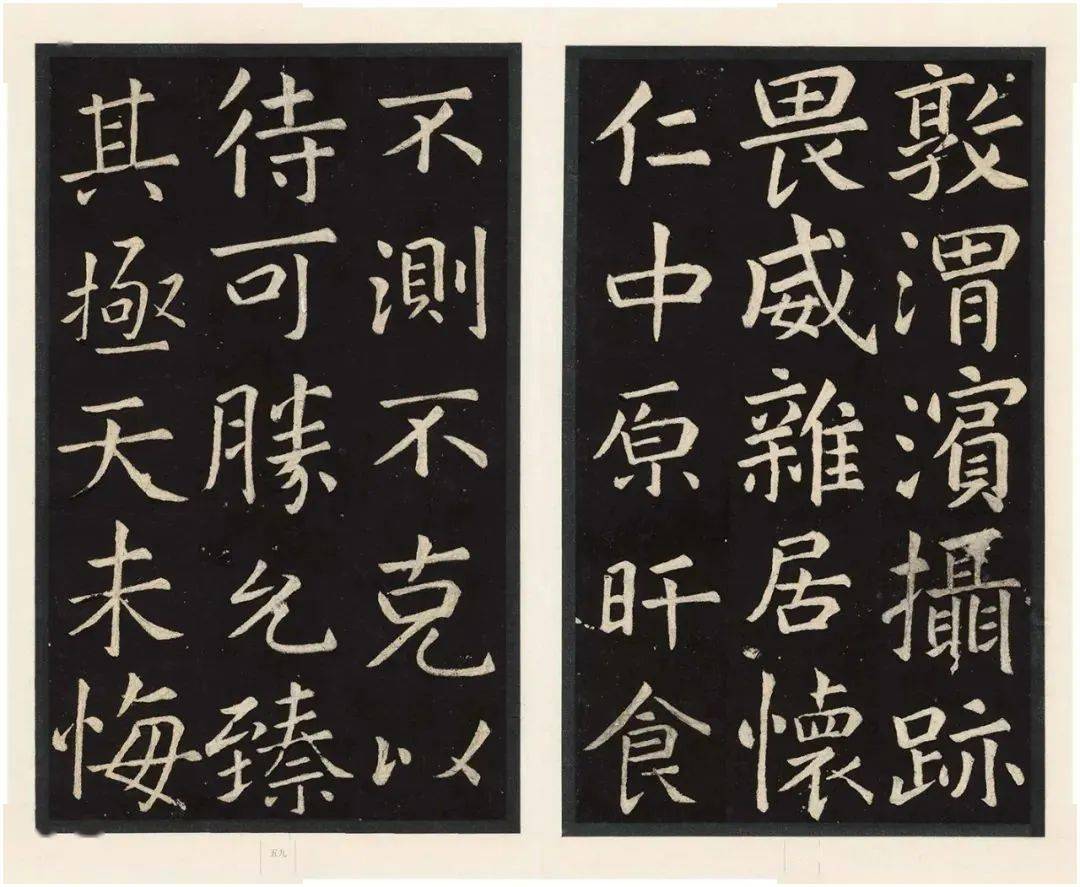 敦渭濵攝跡
畏威雜居懷
仁中原旰食
不測不克以
待可勝允臻
其極天未悔
五九